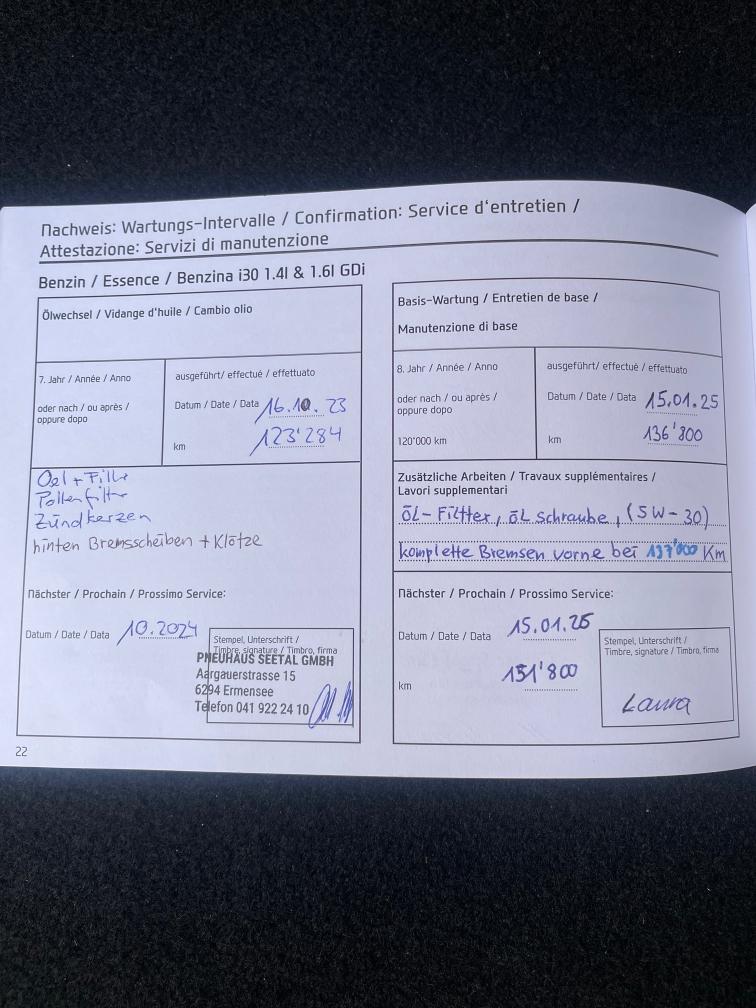 Nachweis: Wartungs-Intervalle / Confirmation: Service d'entretien /
Attestazione: Servizi di manutenzione
Benzin / Essence / Benzina i30 1.4l & 1.6l GDi
Ölwechsel / Vidange d'huile / Cambio olio
7. Jahr / Année / Anno
oder nach / ou après /
oppure dopo
ausgeführt/ effectué / effettuato
Datum / Date / Data 16.10.23
km 123'284
Oel + Filter
Pollenfilter
Zündkerzen
hinten Bremsscheiben + Klötze
Nächster / Prochain / Prossimo Service:
Datum / Date / Data 10.2024
Stempel, Unterschrift /
Timbre, signature / Timbro, firma
PNEUHAUS SEETAL GMBH
Aargauerstrasse 15
6294 Ermensee
Telefon 041 922 24 10
22
Basis-Wartung / Entretien de base /
Manutenzione di base
8. Jahr / Année / Anno
oder nach / ou après /
oppure dopo
120'000 km
ausgeführt/ effectué / effettuato
Datum / Date / Data 15.01.25
km 136'800
Zusätzliche Arbeiten / Travaux supplémentaires /
Lavori supplementari
ÖL-Filtter, ÖL schraube, (5W-30)
komplette Bremsen vorne bei 137'000 Km
Nächster / Prochain / Prossimo Service:
Datum / Date / Data 15.01.26
km 151'800
Stempel, Unterschrift /
Timbre, signature / Timbro, firma
Laura